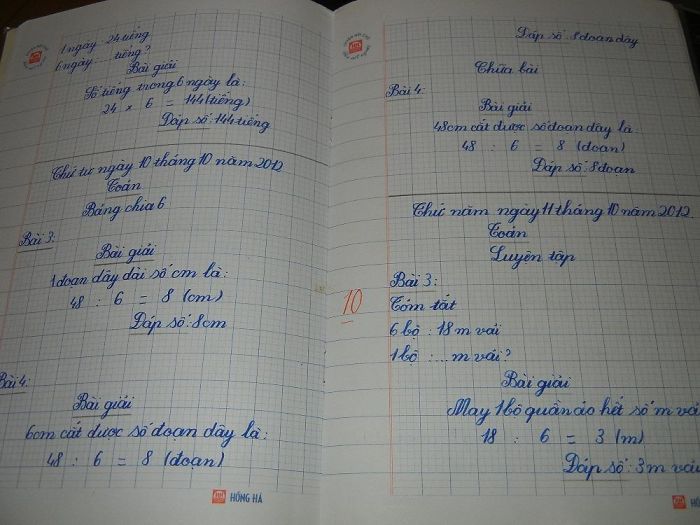 1 ngày 24 tiếng
6 ngày ... tiếng?
Bài giải
Số tiếng trong 6 ngày là:
24 × 6 = 144 (tiếng)
Đáp số: 144 tiếng
Thứ tư ngày 10 tháng 10 năm 2012
Toán
Bảng chia 6
Bài 3:
Bài giải
1 đoạn dây dài số cm là:
48 : 6 = 8 (cm)
Đáp số: 8cm
Bài 4:
Bài giải
6cm cắt được số đoạn dây là:
48 : 6 = 8 (đoạn)
HỒNG HÀ
Đáp số: 8 đoạn dây
Chữa bài
Bài 4:
Bài giải
48cm cắt được số đoạn dây là
48 : 6 = 8 (đoạn)
Đáp số: 8 đoạn
Thứ năm ngày 11 tháng 10 năm 2012
Toán
Luyện tập
10
Bài 3:
Tóm tắt
6 bộ : 18 m vải
1 bộ : ... m vải?
Bài giải
May 1 bộ quần áo hết số m vả
18 : 6 = 3 (m)
Đáp số: 3 m vải
HỒ